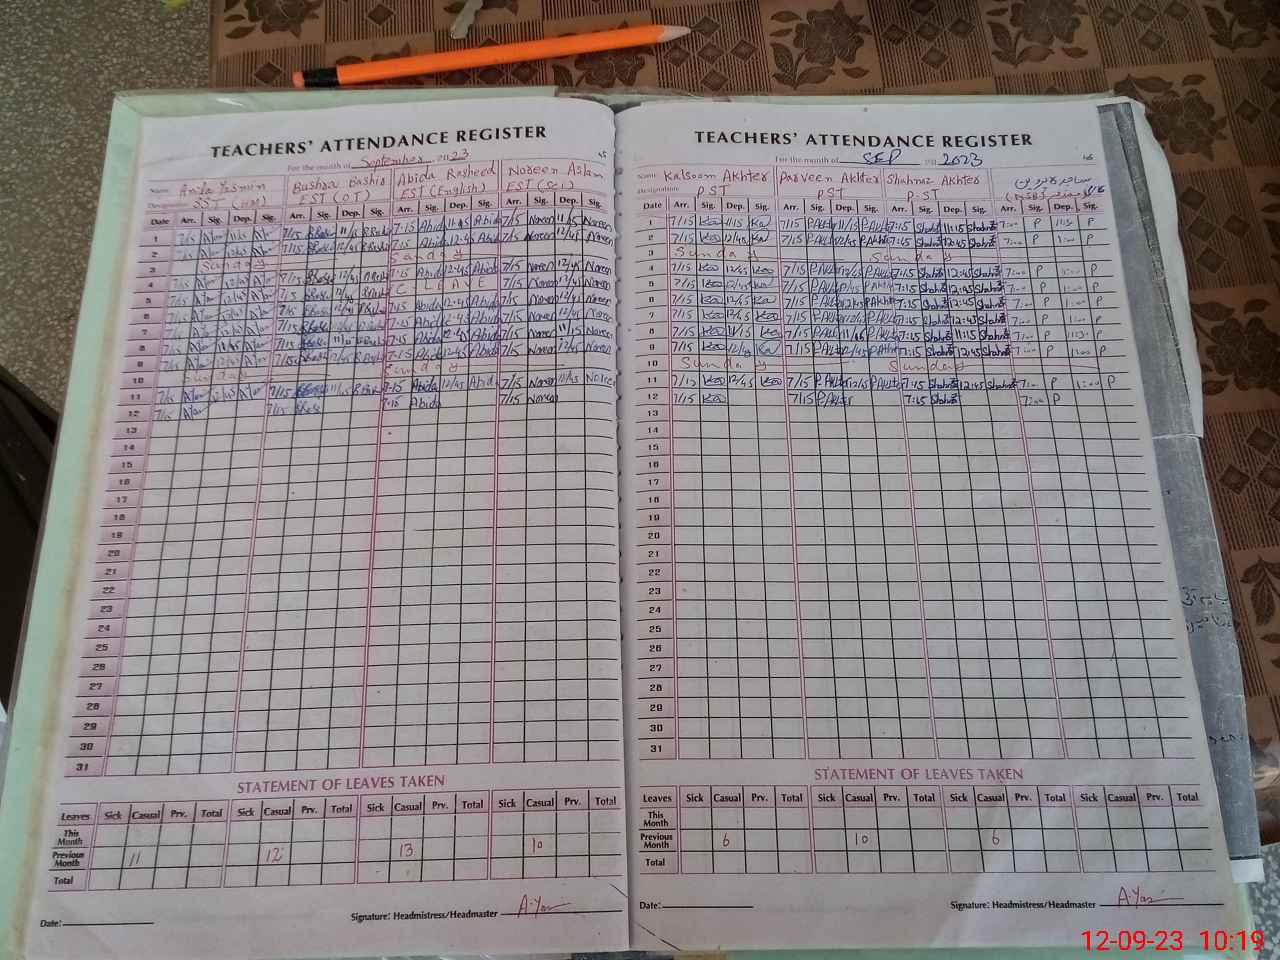 TEACHERS' ATTENDANCE REGISTER
For the month of September 2023
45
Name Anila Yasmin Bushra Bashir Abida Rasheed Noreen Aslam
Designation SST (HM) EST (OT) EST (English) EST (Sci)
Date Arr. Sig. Dep. Sig. Arr. Sig. Dep. Sig. Arr. Sig. Dep. Sig. Arr. Sig. Dep. Sig.
1 7/15 7/15 7:15 Abida 11:15 Abida 7/15 Noreen 11/15 Noreen
2 7/15 7/15 12/45 7:15 Abida 12:45 Abida 7/15 Noreen 12/45 Noreen
3 Sunday Sunday
4 7/15 7/15 12/45 7:15 Abida 12:45 Abida 7/15 Noreen 12/45 Noreen
5 7/15 C LEAVE 7/15 Noreen 12/45 Noreen
6 7/15 7:15 Abida 12:45 Abida 7/15 Noreen 12/45 Noreen
7 7/15 7/15 7:15 Abida 12:45 Abida 7/15 Noreen 12/45 Noreen
8 7/15 7/15 7:15 Abida Abida 7/15 Noreen 11/15 Noreen
9 7/15 7/15 12/45 7:15 Abida 12:45 Abida 7/15 Noreen 12/45 Noreen
10 Sunday Sunday
11 7/15 12/45 7/15 7:15 Abida 12/45 Abida 7/15 Noreen 12/45 Noreen
12 7/15 7/15 7:15 Abida 7/15 Noreen
13
14
15
16
17
18
19
20
21
22
23
24
25
26
27
28
29
30
31
STATEMENT OF LEAVES TAKEN
Leaves Sick Casual Prv. Total Sick Casual Prv. Total Sick Casual Prv. Total Sick Casual Prv. Total
This Month
Previous Month 11 12 13 10
Total
Date: Signature: Headmistress/Headmaster A.Yas
TEACHERS' ATTENDANCE REGISTER
For the month of SEP 2023
46
Name Kalsoom Akhter Parveen Akhter Shahnaz Akhter
Designation PST PST PST
Arr. Sig. Dep. Sig. Arr. Sig. Dep. Sig. Arr. Sig. Dep. Sig. Arr. Sig. Dep. Sig.
1 7/15 11/15 7/15 P.Akhter 11/15 P.Akhter 7:15 Shahnaz 11:15 Shahnaz 7:00 P 11:30 P
2 7/15 12/45 7/15 P.Akhter 12/45 P.Akhter 7:15 Shahnaz 12:45 Shahnaz 7:00 P 1:00 P
3 Sunday Sunday
4 7/15 12/45 7/15 P.Akhter 12/45 P.Akhter 7:15 Shahnaz 12:45 Shahnaz 7:00 P 1:00 P
5 7/15 12/45 7/15 P.Akhter 12/45 P.Akhter 7:15 Shahnaz 12:45 Shahnaz 7:00 P 1:00 P
6 7/15 12/45 7/15 P.Akhter 12/45 P.Akhter 7:15 Shahnaz 12:45 Shahnaz 7:00 P 1:00 P
7 7/15 12/45 7/15 P.Akhter 12/45 P.Akhter 7:15 Shahnaz 12:45 Shahnaz 7:00 P 1:00 P
8 7/15 11/15 7/15 P.Akhter P.Akhter 7:15 Shahnaz 11:15 Shahnaz 7:00 P 11:30 P
9 7/15 12/45 7/15 P.Akhter 12/45 P.Akhter 7:15 Shahnaz 12:45 Shahnaz 7:00 P 1:00 P
10 Sunday Sunday
11 7/15 12/45 7/15 P.Akhter 12/45 P.Akhter 7:15 Shahnaz 12:45 Shahnaz 7:00 P 1:00 P
12 7/15 7/15 P.Akhter 7:15 Shahnaz 7:00 P
13
14
15
16
17
18
19
20
21
22
23
24
25
26
27
28
29
30
31
STATEMENT OF LEAVES TAKEN
Leaves Sick Casual Prv. Total Sick Casual Prv. Total Sick Casual Prv. Total Sick Casual Prv. Total
This Month
Previous Month 6 10 6
Total
Date: Signature: Headmistress/Headmaster A.Yas
12-09-23 10:19